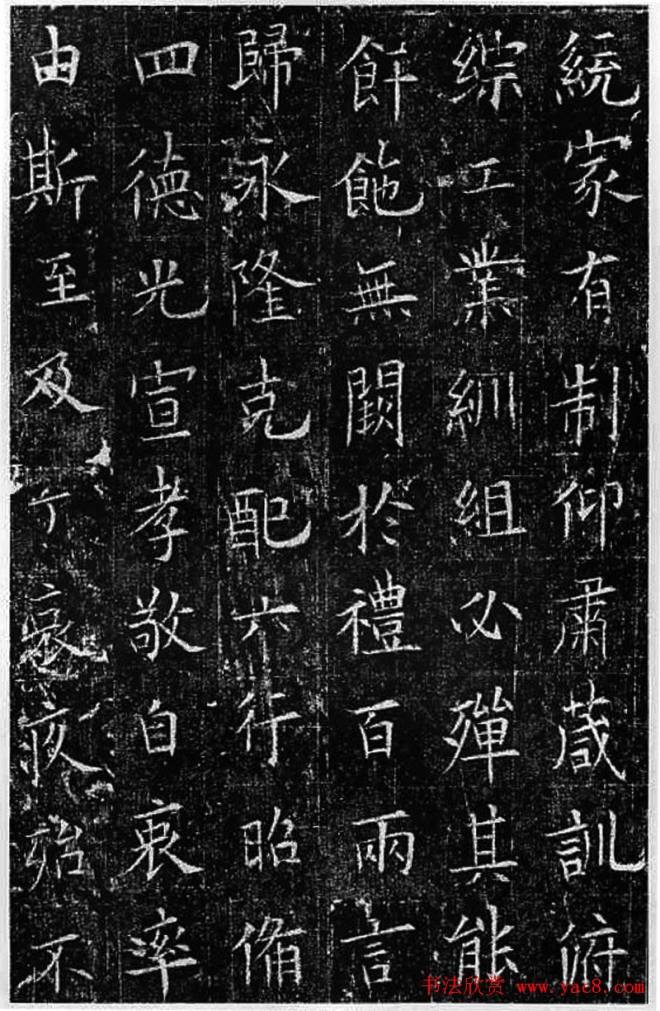 統家有制仰肅葴訓俯
綜工業紃組必殫其能
飦無闕於禮百兩言
歸永隆克配六行昭俻
四德光宣孝敬自衷率
由斯至及丁哀疚殆不
书法欣赏 www.yac8.com